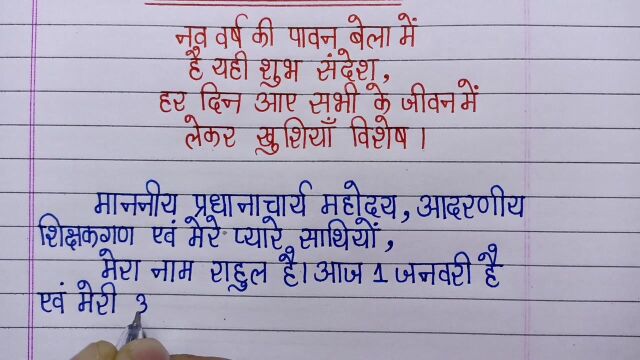 नव वर्ष की पावन बेला में
है यही शुभ संदेश,
हर दिन आए सभी के जीवन में
लेकर खुशियाँ विशेष।
माननीय प्रधानाचार्य महोदय, आदरणीय
शिक्षकगण एवं मेरे प्यारे साथियों,
मेरा नाम राहुल है। आज 1 जनवरी है
एवं मेरी